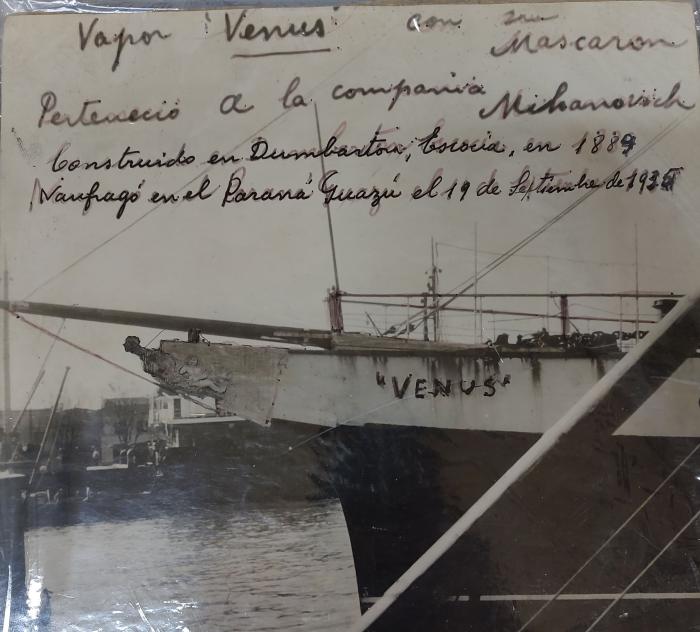 Vapor "Venus" con su
Mascaron
Perteneció a la compania Mihanovich
Construido en Dumbarton, Escocia, en 1889
Naufragó en el Paraná Guazú el 19 de Septiembre de
"VENUS"